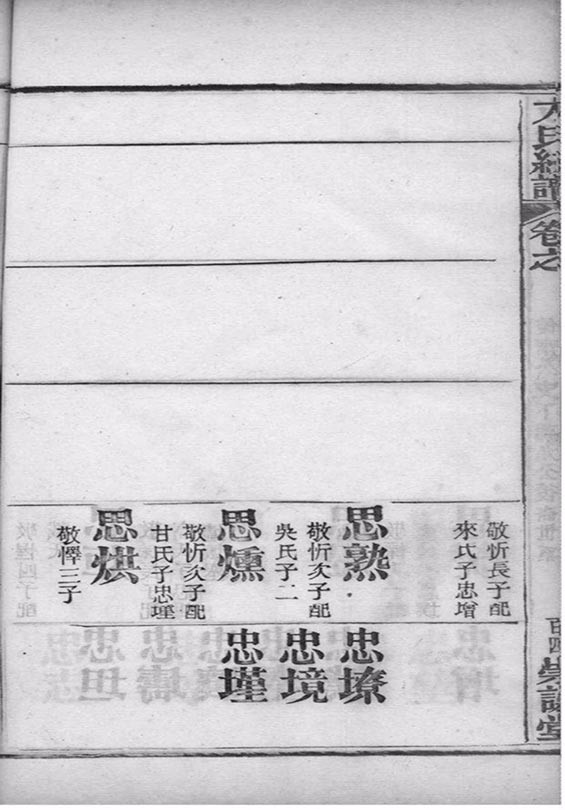 氏譜卷之
百四
堂
敬忻長子配
來氏子忠增
思熟
敬忻次子配
吳氏子二
思燻
敬忻次子配
甘氏子忠墐
思烘
敬懌三子
忠
忠境
忠墐